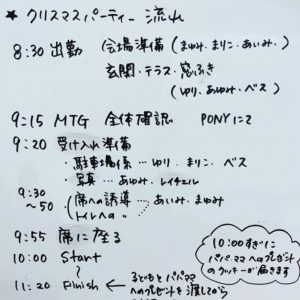 ★ クリスマスパーティー 流れ
8:30 出勤 会場準備 (まゆみ・まりこ・あいみ・)
玄関・テラス・窓ふき
(ゆり、あゆみ・ベス)
9:15 MTG 全体確認 PONYにて
9:20 受け入れ準備
・駐車場係 … ゆり・まりこ・ベス
・写真 … あゆみ・レイチェル
9:30 ~50 (席への誘導 … あいみ・まゆみ
トイレへの 〃
9:55 席に座る
10:00 Start
10:00すぎに
パパ・ママへのプレゼント
のクッキーが届きます
~
11:20 Finish ← 子どもとパパママ
へのプレゼントを渡しながら